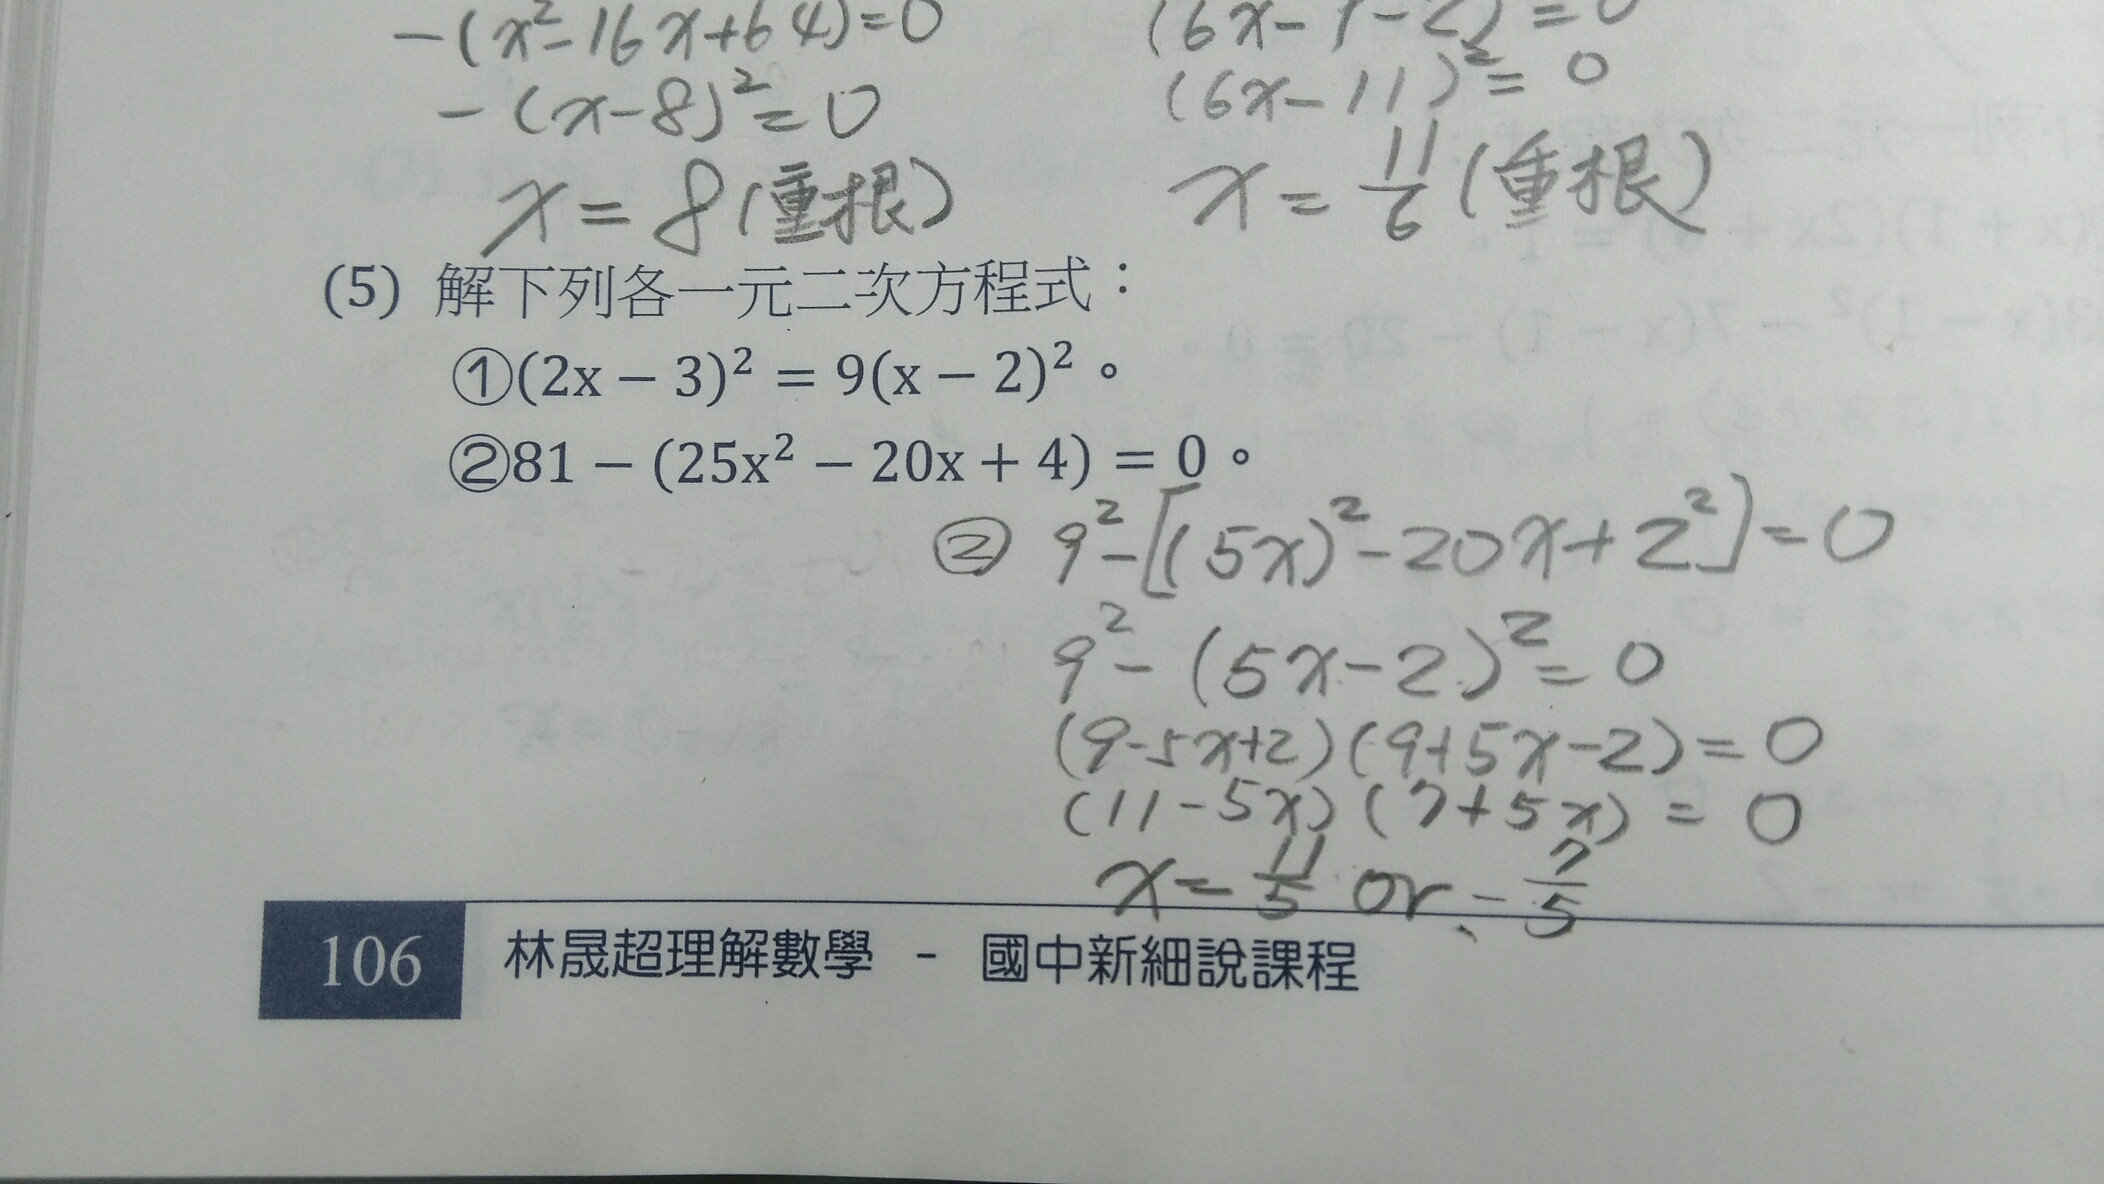 -(x²-16x+64)=0
-(x-8)²=0
x=8(重根)
(6x-11)²=0
x=11/6(重根)
(5) 解下列各一元二次方程式：
①(2x − 3)² = 9(x − 2)²。
②81 − (25x² − 20x + 4) = 0。
② 9²-[(5x)²-20x+2²]=0
9²-(5x-2)²=0
(9-5x+2)(9+5x-2)=0
(11-5x)(7+5x)=0
x=11/5 or -7/5
106 林晟超理解數學 - 國中新細說課程